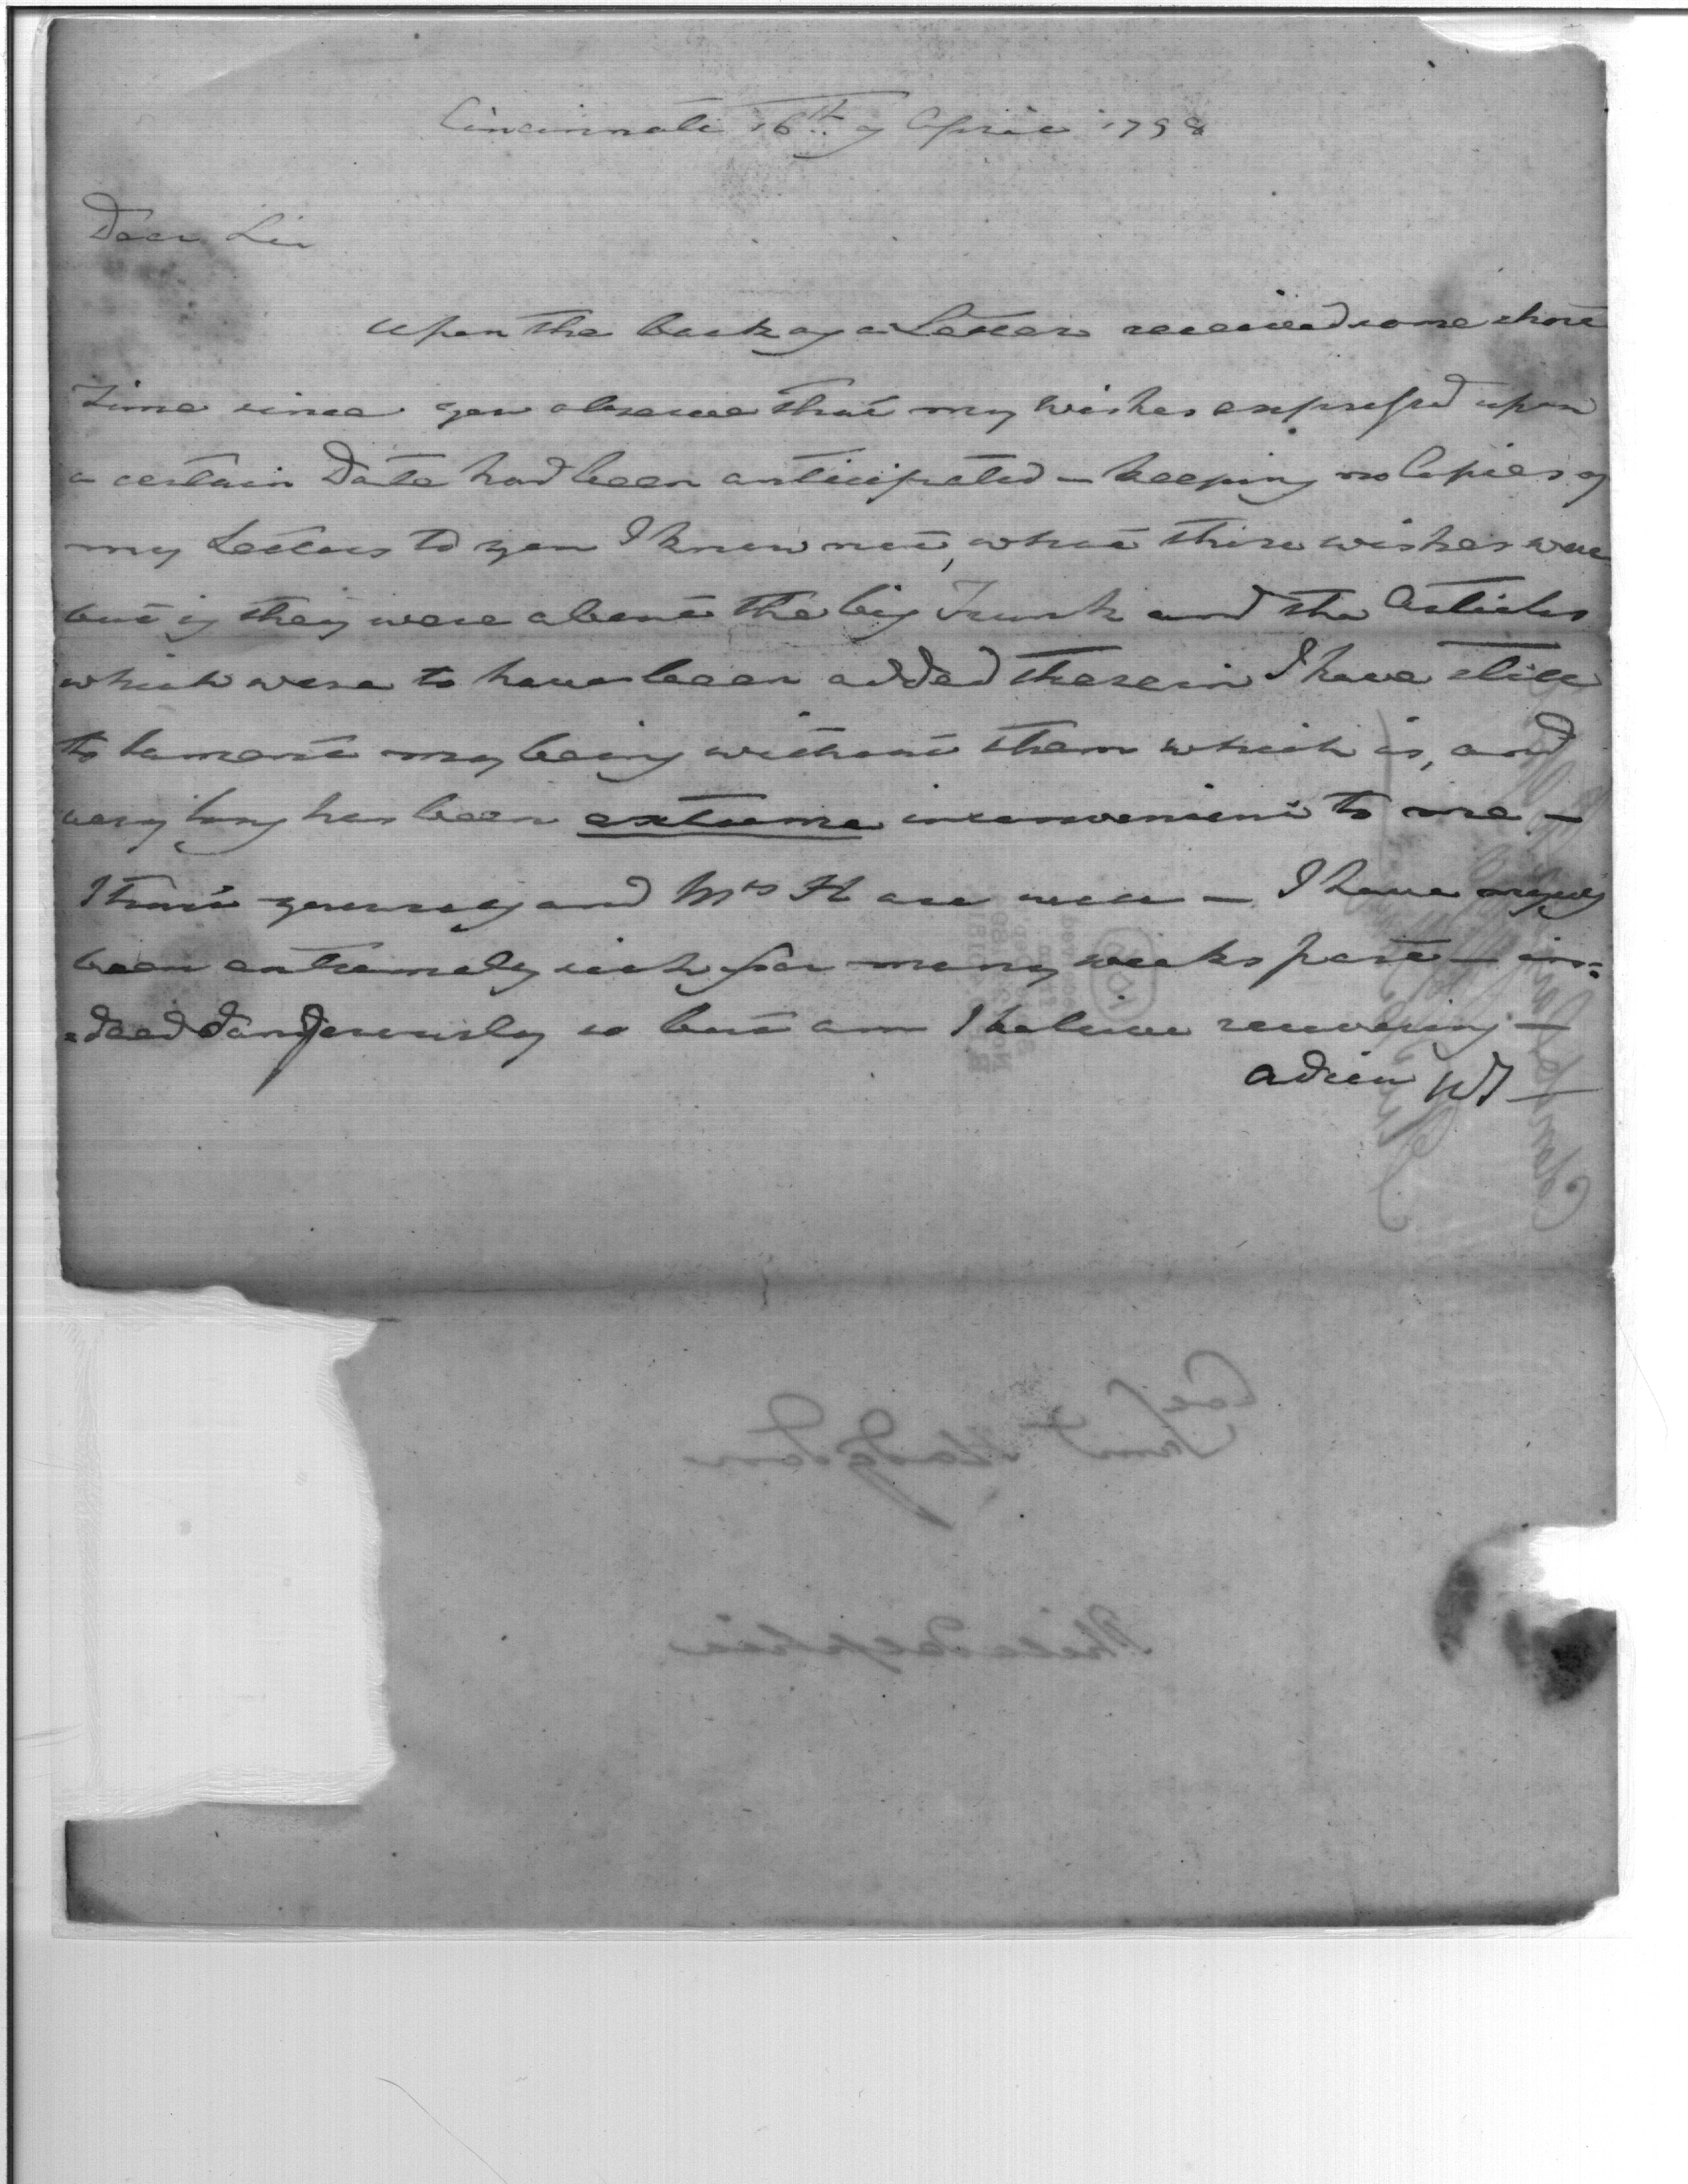 Cincinnati 16th of April 1798
Dear Sir
Upon the back of a Letter received some short
time since you observe that my wishes expressed upon
a certain Date had been anticipated — keeping no Copies of
my Letters to you I know not, what those wishes were
but if they were about the big Trunk and the Articles
which were to have been added therein I have still
to lament my being without them which is, and
very long has been extreme inconvenient to me —
I trust yourself and Mrs H are well — I have myself
been extremely sick for many weeks past — in=
=deed dangerously so but am I believe recovering —
adieu
Col
Saml Hodgdon
Philadelphia